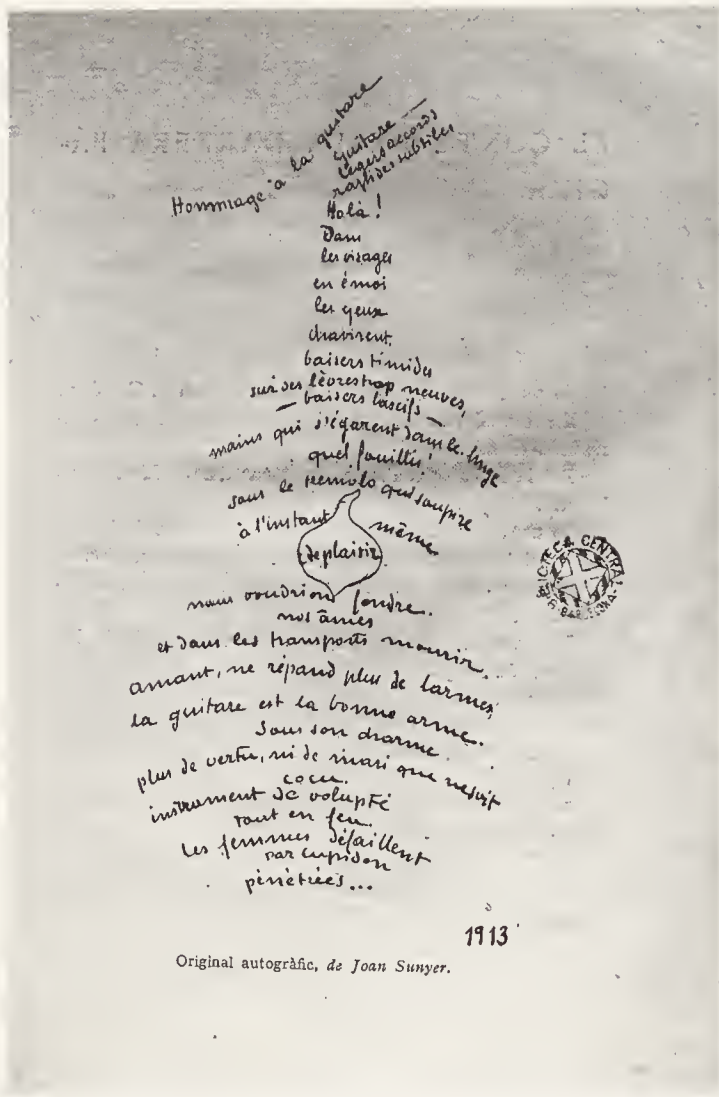 Hommage à la guitare
Guitare —
légers accords
rapides subtiles
Holà !
Dans
les visages
en émoi
les yeux
chavirent,
baisers timides
sur des lèvres trop neuves,
— baisers lascifs —
mains qui s'égarent dans le linge
quel fouillis!
sous le tremolo qui soupire
à l'instant même
de plaisir
nous voudrions fondre.
nos âmes
et dans les transports mourir.
amant, ne répand plus de larmes,
la guitare est la bonne arme.
Sous son charme
plus de vertu, ni de mari que ne soit
cocu.
instrument de volupté
tout en feu.
Les femmes défaillent
par cupidon
pénétrées...
1913
Original autogràfic, de Joan Sunyer.
CENTRAL